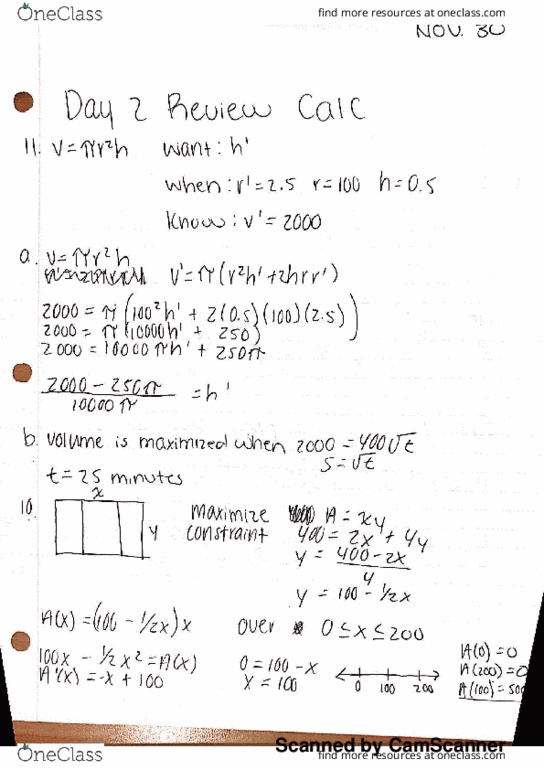 OneClass
find more resources at oneclass.com
NOV. 30
Day 2 Review Calc
11. V=πr²h want: h'
when: r'=2.5 r=100 h=0.5
Know: V'=2000
a. V=πr²h
V'=π(r²h'+2hrr')
2000=π(100²h'+2(0.5)(100)(2.5))
2000=π(10000h'+250)
2000=10000πh'+250π
2000-250π/10000π=h'
b. volume is maximized when 2000=400√t
5=√t
t=25 minutes
x
10. maximize A=xy
y constraint 400=2x+4y
y=400-2x/4
y=100-1/2x
A(x)=(100-1/2x)x over 0≤x≤200
100x-1/2x²=A(x) 0=100-x A(0)=0
A'(x)=-x+100 x=100 0 100 200 A(200)=0
A(100)=500
Scanned by CamScanner
OneClass
find more resources at oneclass.com